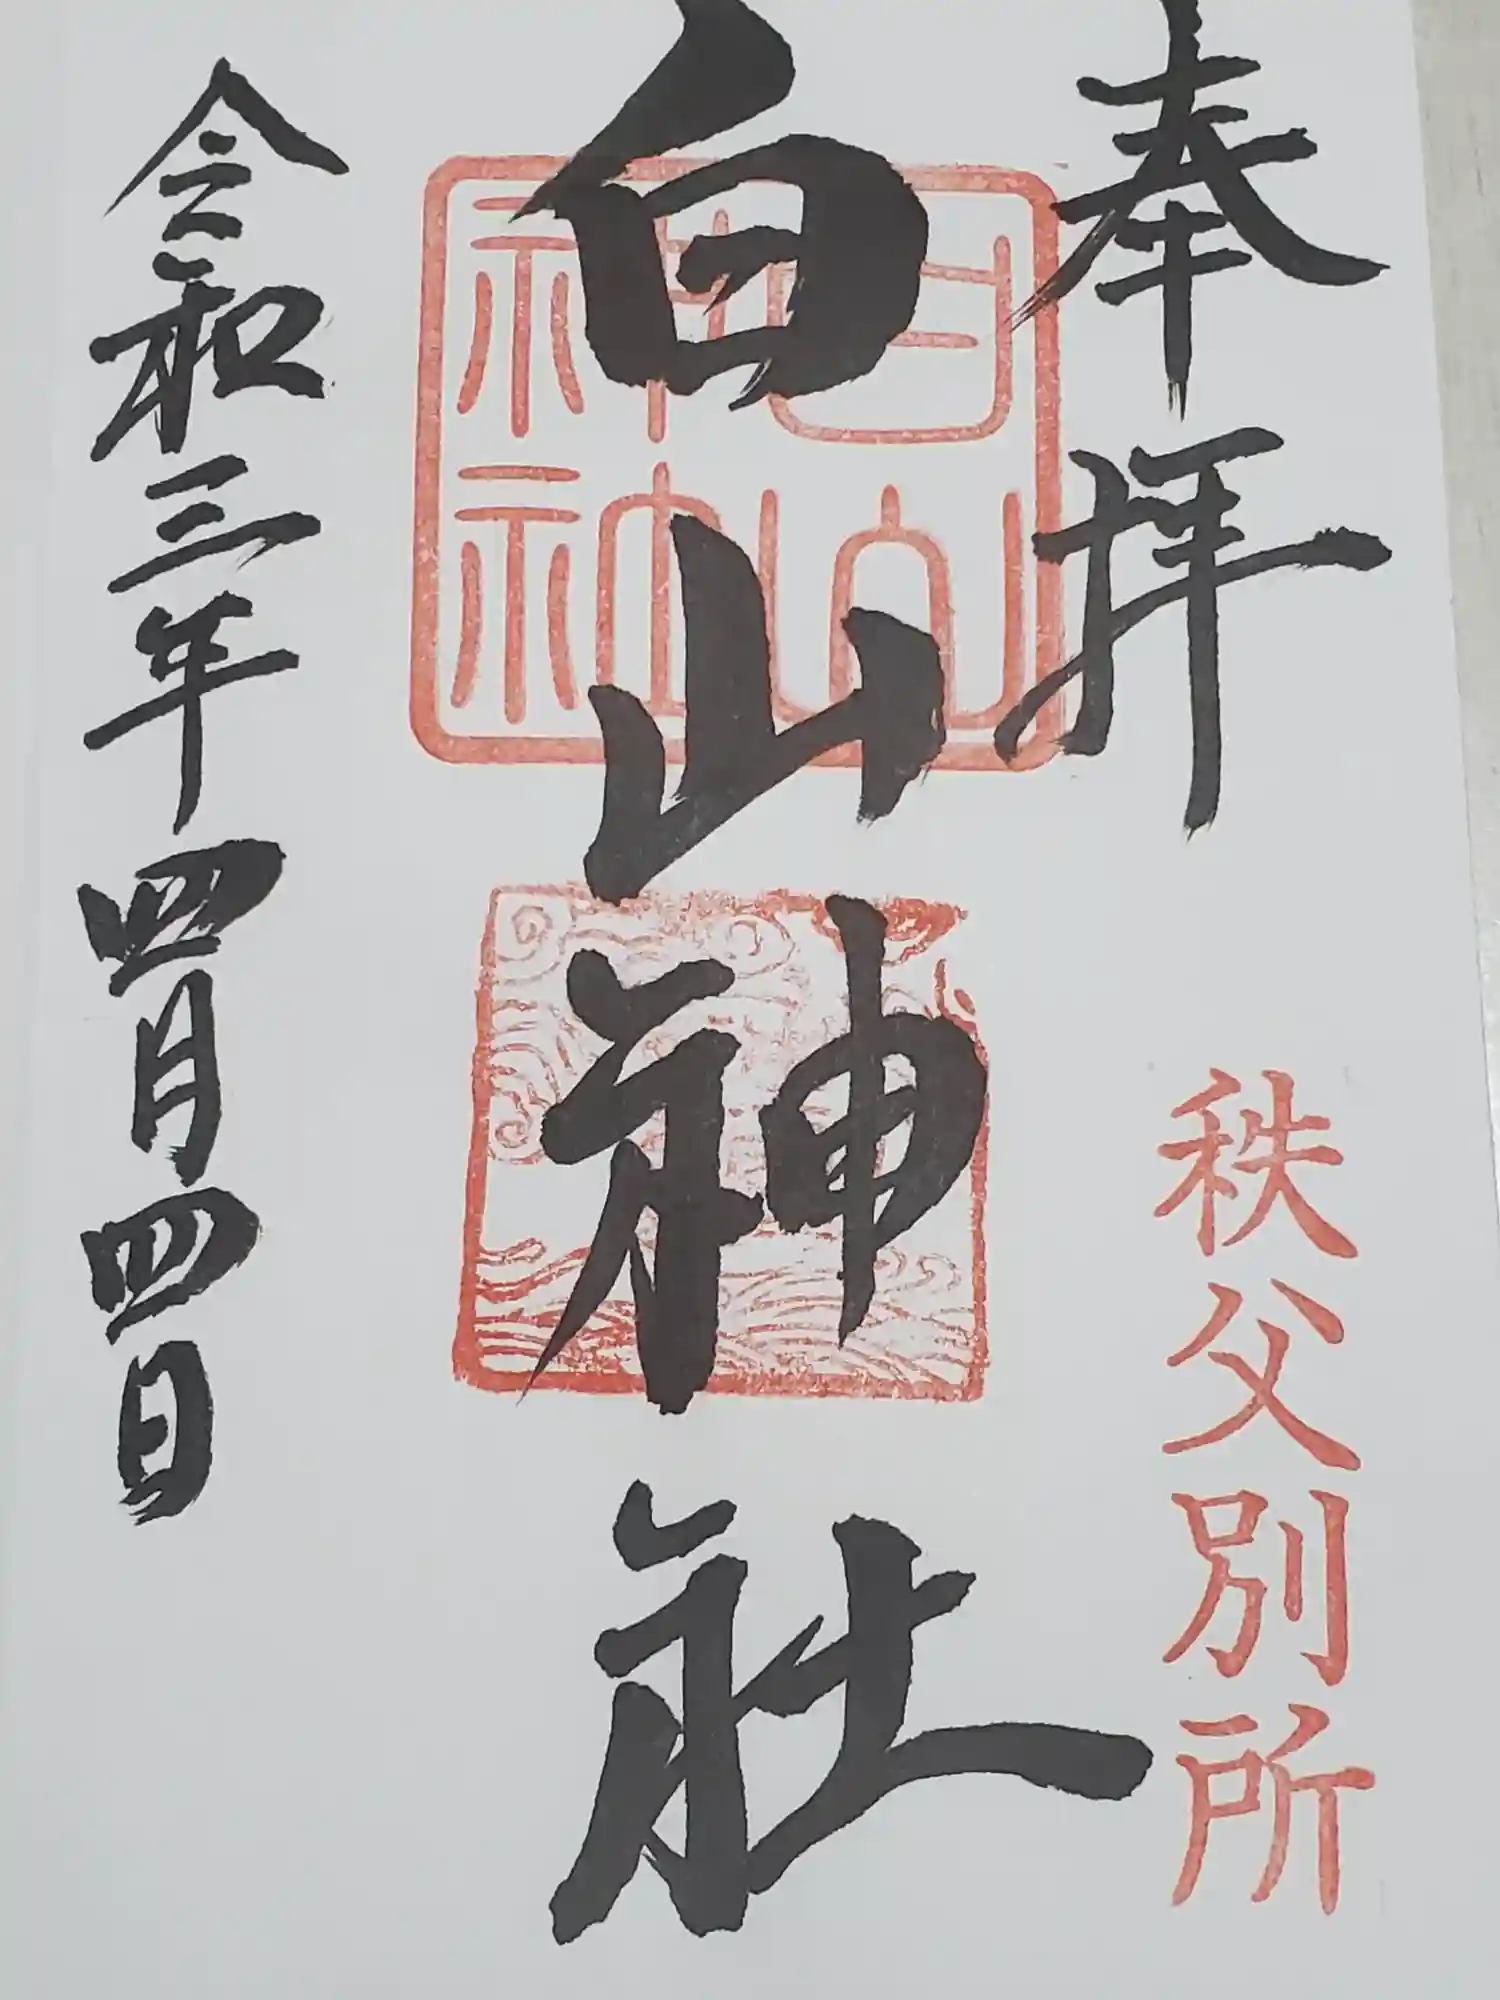 奉拝
秩父別所
白山神社
白山
神社
令和三年四月四日